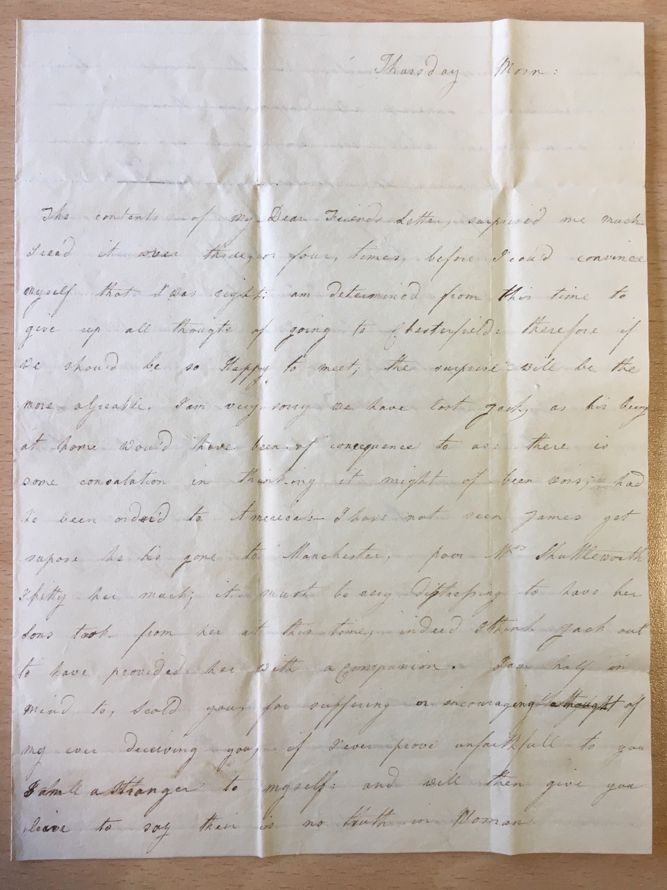 Thursday Morn:
The contents of my Dear Friends Letter, surprised me much
I read it over three, or four, times, before I could convince
myself that I was right; am determined from this time to
give up all thoughts of going to Chesterfield: therefore if
we should be so Happy to meet, the surprise will be the
more agreable. I am very sorry we have lost Jack, as his being
at home would have been of concequence to us: there is
some consalation in thinking it might of been wors; had
he been orderd to America I have not seen James yet
supose he his gone to Manchester, poor Mrs Shuttleworth
I pitty her much; it must be very distressing to have her
Sons took from her at this time, indeed I think Jack out
to have provided her with a Companion. I am half in
mind to, scold you, for suffering or encouraging a thought of
my ever deceiving you, if I ever prove unfaithfull to you
I shall a Stranger to myself: and will then give you
leave to say their is no truth in Woman